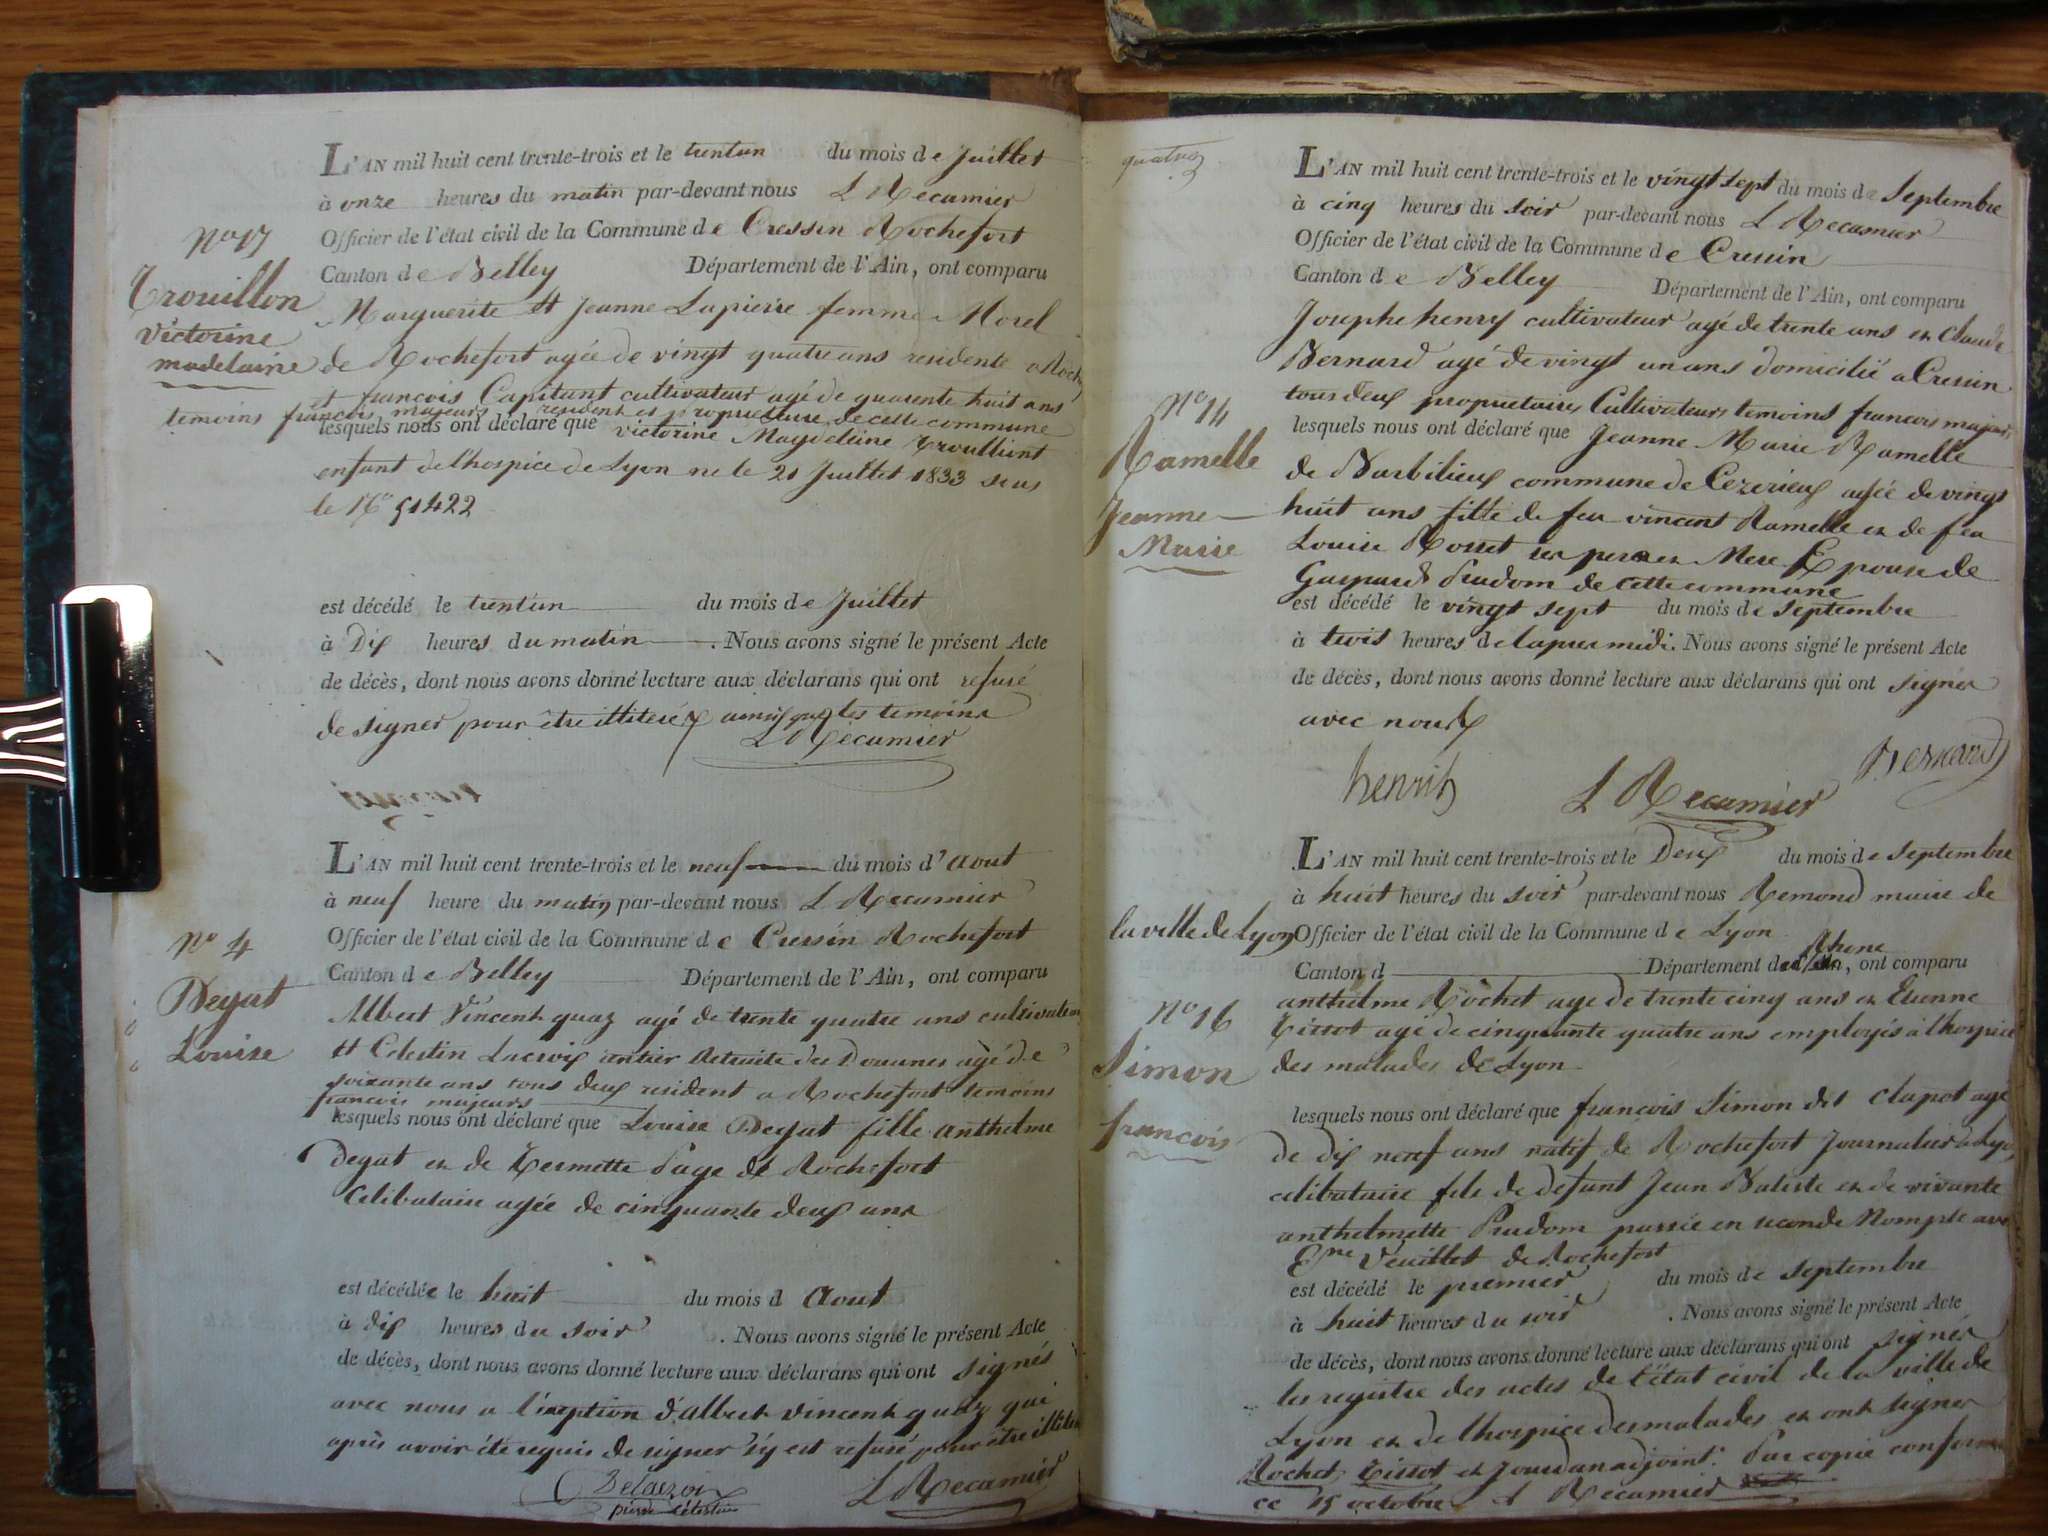 L'AN mil huit cent trente-trois et le trentun du mois de Juillet
à onze heures du matin par-devant nous L Recamier
Officier de l'état civil de la Commune de Cressin Rochefort
Canton de Belley Département de l'Ain, ont comparu
N° 17
Trouillon
Victorine
madelaine
Marguerite et Jeanne Lapierre femme Morel
de Rochefort agée de vingt quatre ans residente a
et françois Capitant cultivateur agé de quarente huit ans
temoins francois majeurs resident et propriétaire de cette commune
lesquels nous ont déclaré que victorine Magdeleine
enfant de l'hospice de Lyon ne le 21 Juillet 1833 sous
le N° 51422
est décédé le trentun du mois de Juillet
à Dix heures du matin . Nous avons signé le présent Acte
de décès, dont nous avons donné lecture aux déclarans qui ont refusé
de signer pour être illiteré ainsi que les temoins
L Recamier
L'AN mil huit cent trente-trois et le neuf du mois d'aout
à neuf heure du matin par-devant nous L Recamier
Officier de l'état civil de la Commune de Cressin Rochefort
Canton de Belley Département de l'Ain, ont comparu
N° 4
Deyat
Louise
Albert Vincent quaz agé de trente quatre ans cultivateur
et Celestin Lacroix Retraite des Douanes agé de
soixante ans tous deux resident a Rochefort temoins
francois majeurs
lesquels nous ont déclaré que Louise Deyat fille anthelme
Deyat et de Page de Rochefort
Celibataire agée de cinquante deux ans
est décédée le huit du mois d Aout
à dix heures du soir . Nous avons signé le présent Acte
de décès, dont nous avons donné lecture aux déclarans qui ont signés
avec nous a l'exeption d'albert vincent quaz qui
après avoir été requis de signer s'y est refusé pour être
Delacroix
pierre célestin
L Recamier
L'AN mil huit cent trente-trois et le vingt sept du mois de Septembre
à cinq heures du soir par-devant nous L Recamier
Officier de l'état civil de la Commune de Cressin
Canton de Belley Département de l'Ain, ont comparu
Josephe henry cultivateur agé de trente ans et claude
Bernard agé de vingt un ans domicilié a Cressin
tous deux proprietaires Cultivateurs temoins francois majeurs
N° 14
Ramelle
Jeanne
Marie
lesquels nous ont déclaré que Jeanne Marie Ramelle
de commune de agée de vingt
huit ans fille de feu vincent Ramelle et de feu
Louise Rosset ses pere et Mere Epouse de
Gaspard Prudom de cette commune
est décédé le vingt sept du mois de septembre
à trois heures de lapres midi. Nous avons signé le présent Acte
de décès, dont nous avons donné lecture aux déclarans qui ont signer
avec nous
L Recamier
Bernard
L'AN mil huit cent trente-trois et le Deux du mois de septembre
à huit heures du soir par-devant nous Remond maire de
la ville de Lyon Officier de l'état civil de la Commune de Lyon
Canton d Département du Rhone, ont comparu
N° 16
Simon
francois
anthelme Rochet age de trente cinq ans et Etienne
Tissot agé de cinquante quatre ans employés a l'hospice
des malades de Lyon
lesquels nous ont déclaré que françois Simon dit Clapot agé
de dix neuf ans natif de Rochefort Journalier a Lyon
celibataire fils de defunt Jean Batiste et de vivante
anthelmette Prudom passée en seconde avec
Veuillet de Rochefort
est décédé le premier du mois de septembre
à huit heures du soir . Nous avons signé le présent Acte
de décès, dont nous avons donné lecture aux déclarans qui ont signés
les registre des actes de l'état civil de la ville de
Lyon et de l'hospice des malades et ont signer
Rochet, Tissot et Jourdan adjoint. Par copie conforme
ce 15 octobre L Recamier